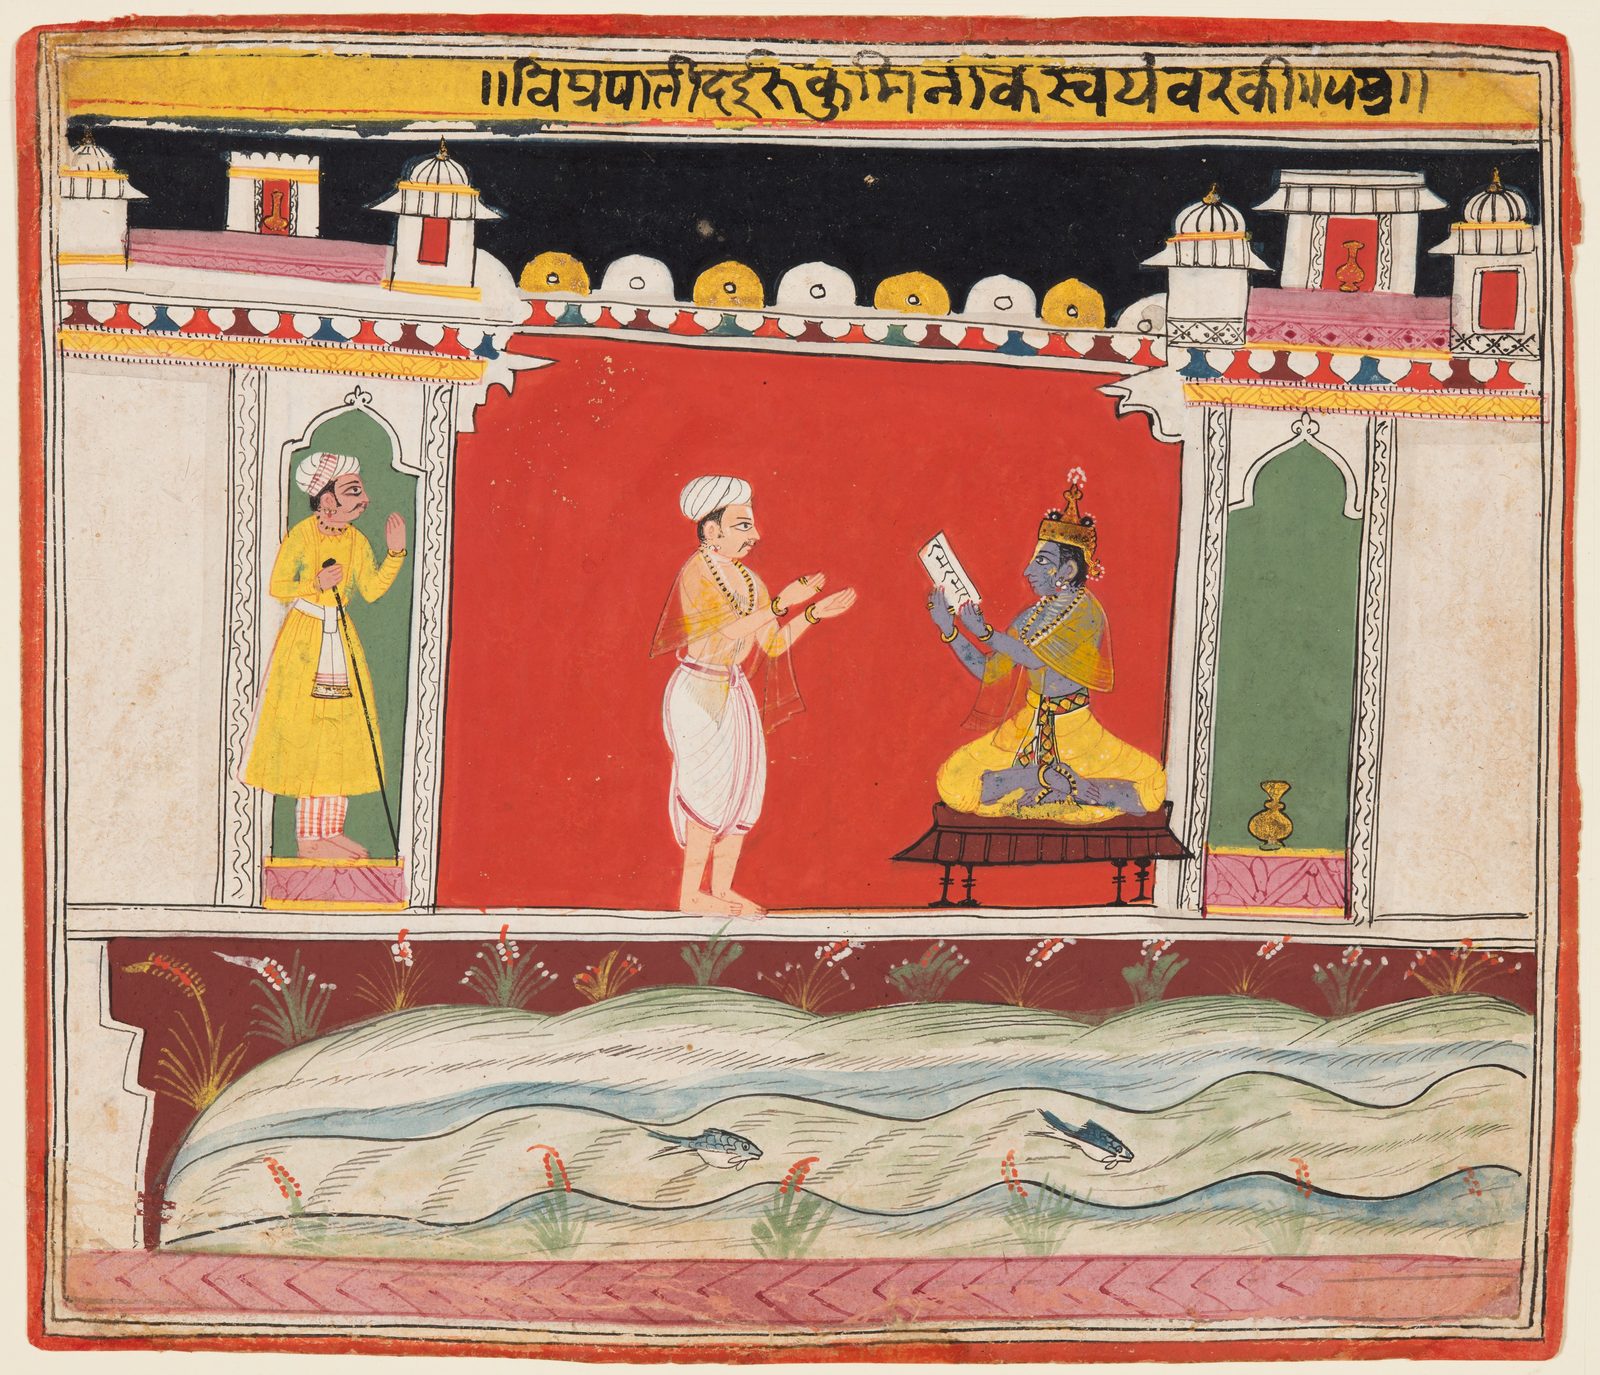 ॥विप्रपातीदईरूकुमिनीकेस्वयंवरकी॥